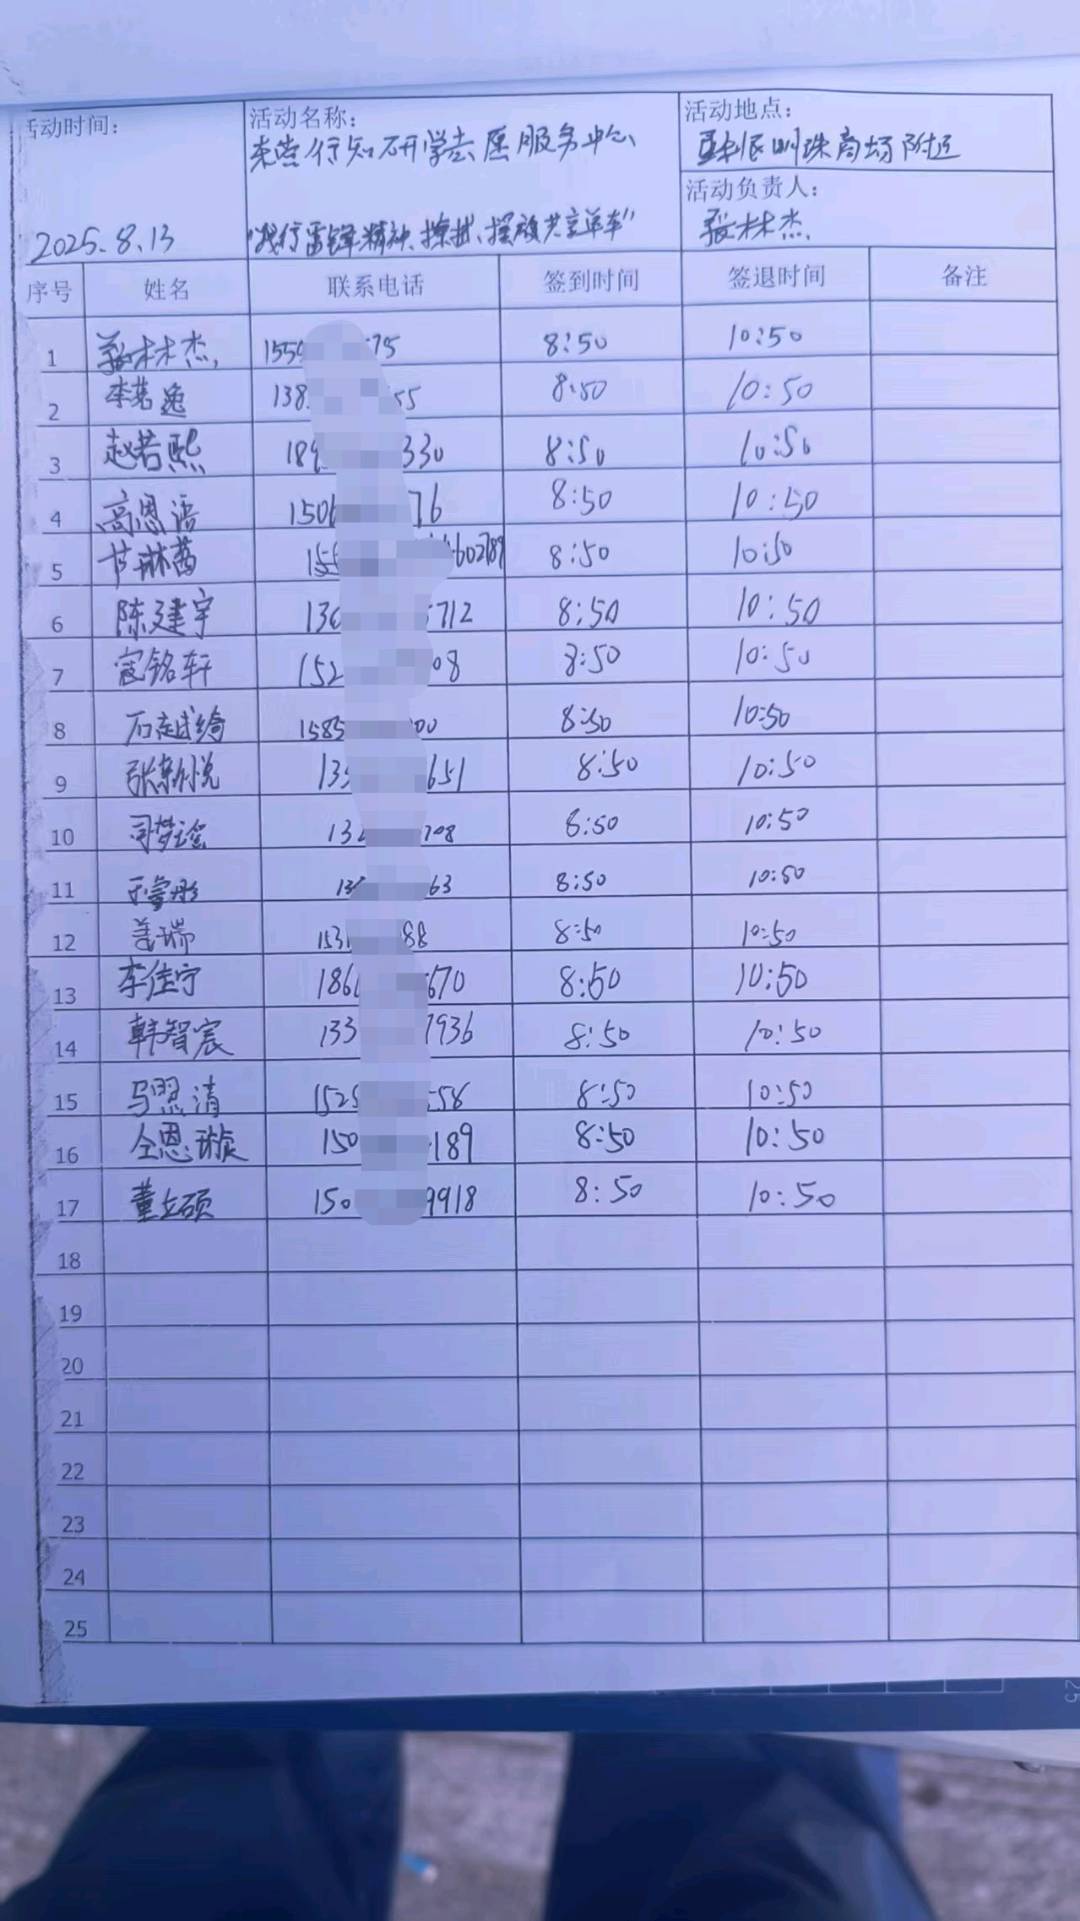 活动时间：
2025.8.13
活动名称：
行知研学志愿服务中心
"践行雷锋精神、擦拭、摆放共享单车"
活动地点：
明珠商场附近
活动负责人：
张林杰
序号 姓名 联系电话 签到时间 签退时间 备注
1 张林杰 155 75 8:50 10:50
2 李若逸 138 55 8:50 10:50
3 赵若熙 189 330 8:50 10:50
4 高恩语 150 76 8:50 10:50
5 琳茜 8:50 10:50
6 陈建宇 712 8:50 10:50
7 寇铭轩 152 08 8:50 10:50
8 石越绮 1585 00 8:50 10:50
9 张新悦 13 651 8:50 10:50
10 司梦瑶 13 708 8:50 10:50
11 13 63 8:50 10:50
12 姜瑞 1531 88 8:50 10:50
13 李佳宁 186 670 8:50 10:50
14 韩智宸 133 7936 8:50 10:50
15 马熙清 1525 558 8:50 10:50
16 仝恩璇 150 189 8:50 10:50
17 董立硕 150 9918 8:50 10:50
18
19
20
21
22
23
24
25
25